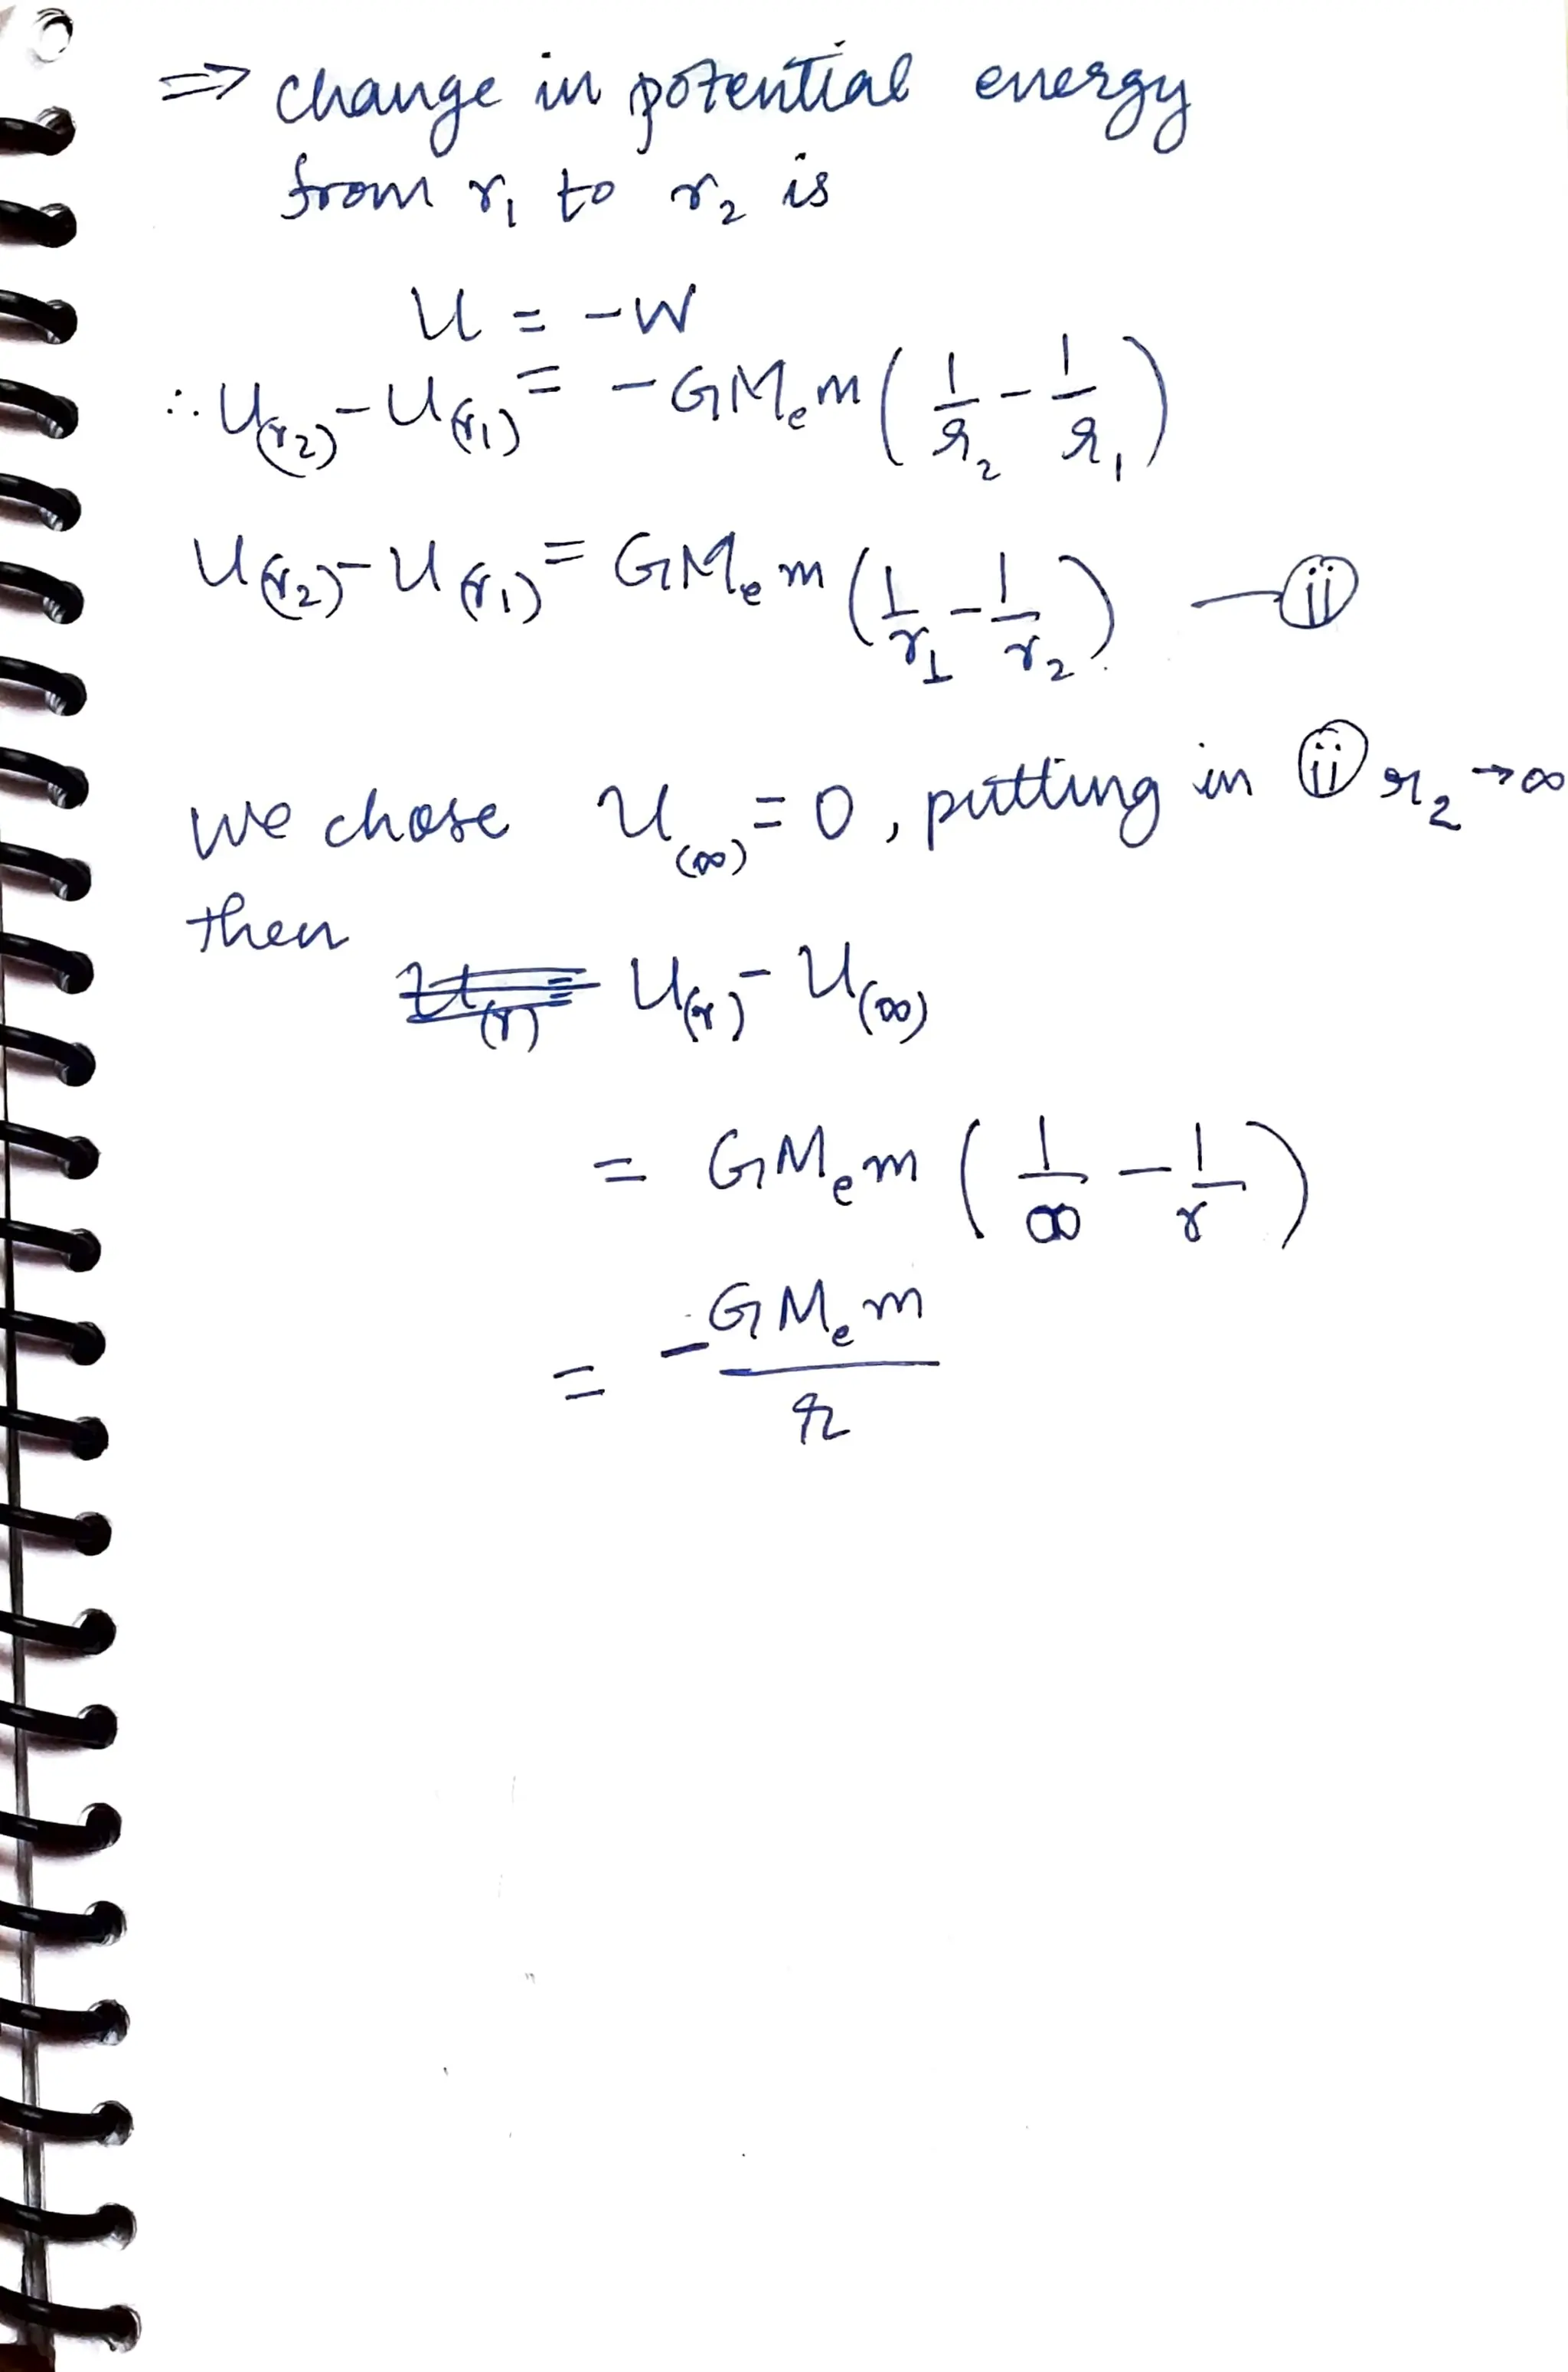 ⇒ change in potential energy
from r₁ to r₂ is
U = -W
∴ U(r₂) - U(r₁) = -GMₑm(1/r₂ - 1/r₁)
U(r₂) - U(r₁) = GMₑm(1/r₁ - 1/r₂) — ⓘⓘ
We chose U(∞) = 0, putting in ⓘⓘ r₂ → ∞
then
U(r) - U(∞)
= GMₑm(1/∞ - 1/r)
= -GMₑm/r